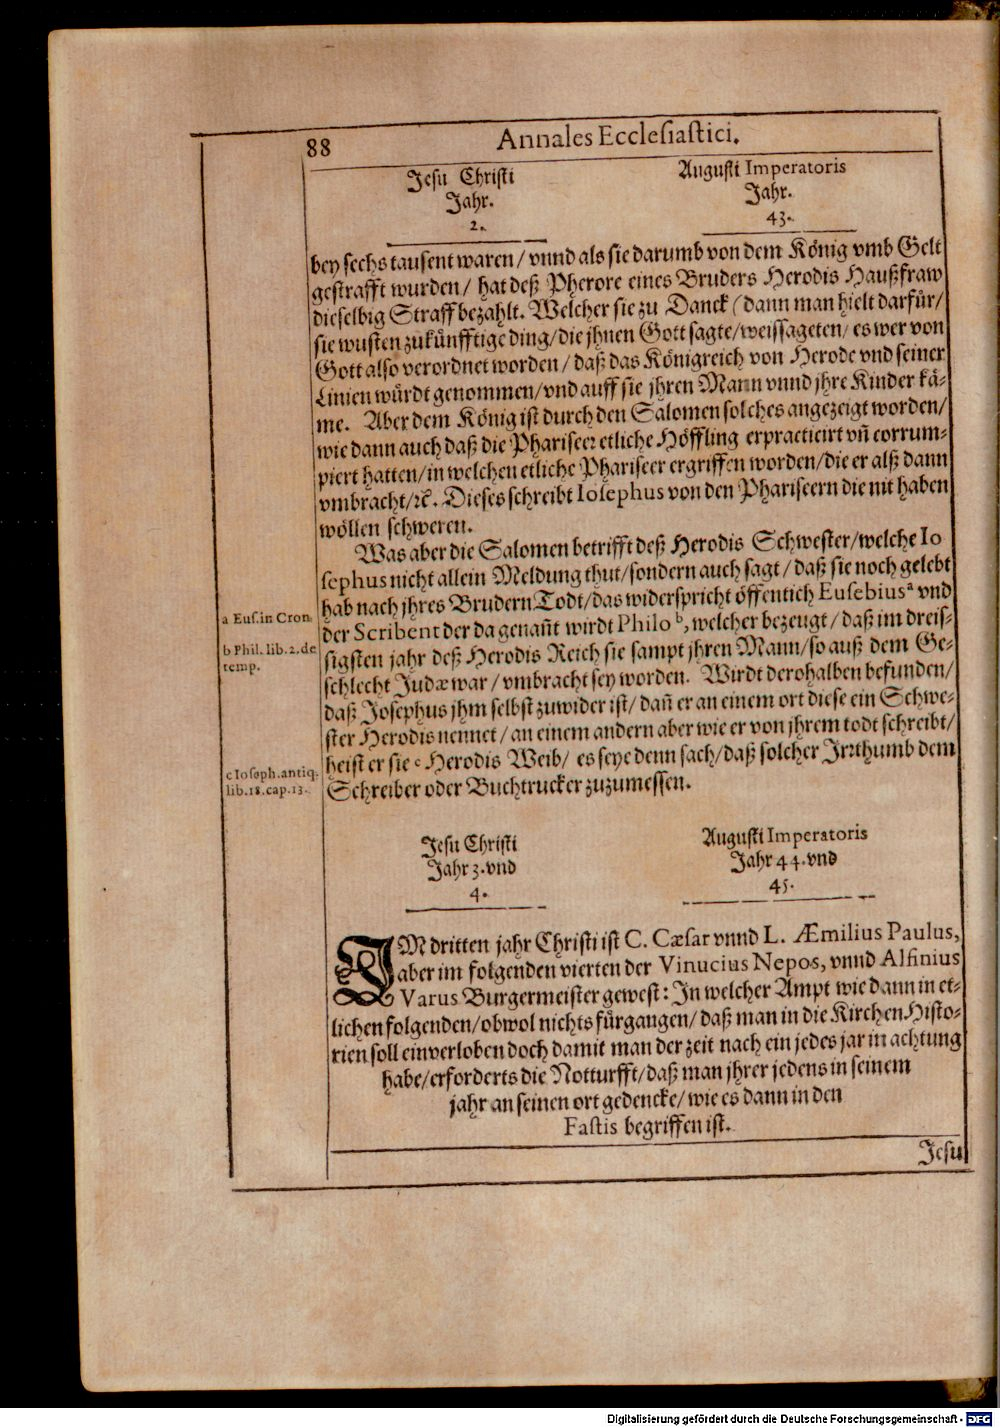 88 Annales Ecclesiastici.
Jesu Christi
Jahr.
2.
Augusti Imperatoris
Jahr.
43.
bey sechs tausent waren / vnnd als sie darumb von dem König vmb Gelt
gestrafft wurden / hat deß Pherore eines Bruders Herodis Haußfraw
dieselbig Straff bezahlt. Welcher sie zu Danck (dann man hielt darfür/
sie wusten zukünfftige ding / die jhnen Gott sagte / weissageten / es wer von
Gott also verordnet worden / daß das Königreich von Herode vnd seiner
Linien würdt genommen / vnd auff sie jhren Mann vnnd jhre Kinder kä-
me. Aber dem König ist durch den Salomen solches angezeigt worden/
wie dann auch daß die Phariseer etliche Höffling erpracticirt vñ corrum-
piert hatten / in welchen etliche Phariseer ergriffen worden / die er alß dann
vmbracht / ꝛc. Dieses schreibt Iosephus von den Phariseern die nit haben
wöllen schweren.
Was aber die Salomen betrifft deß Herodis Schwester / welche Io
sephus nicht allein Meldung thut / sondern auch sagt / daß sie noch gelebt
hab nach jhres Brudern Todt / das widerspricht öffentich Eusebius a vnd
der Scribent der da genañt wirdt Philo b, welcher bezeugt / daß im dreis-
sigsten jahr deß Herodis Reich sie sampt jhren Mann / so auß dem Ge-
schlecht Judæ war / vmbracht sey worden. Wirdt derohalben befunden/
daß Josephus jhm selbst zuwider ist / dañ er an einem ort diese ein Schwe-
ster Herodis nennet / an einem andern aber wie er von jhrem todt schreibt/
heist er sie c Herodis Weib / es seye denn sach / daß solcher Irrthumb dem
Schreiber oder Buchtrucker zuzumessen.
a Eus. in Cron.
b Phil. lib. 2. de
temp.
c Ioseph. antiq.
lib. 18. cap. 13.
Jesu Christi
Jahr 3. vnd
4.
Augusti Imperatoris
Jahr 44. vnd
45.
IM dritten jahr Christi ist C. Cæsar vnnd L. Æmilius Paulus,
aber im folgenden vierten der Vinucius Nepos, vnnd Alfinius
Varus Burgermeister gewest: In welcher Ampt wie dann in et-
lichen folgenden / obwol nichts fürgangen / daß man in die Kirchen Histo-
rien soll einverloben doch damit man der zeit nach ein jedes jar in achtung
habe / erforderts die Notturfft / daß man jhrer jedens in seinem
jahr an seinen ort gedencke / wie es dann in den
Fastis begriffen ist.
Jesu
Digitalisierung gefördert durch die Deutsche Forschungsgemeinschaft - DFG